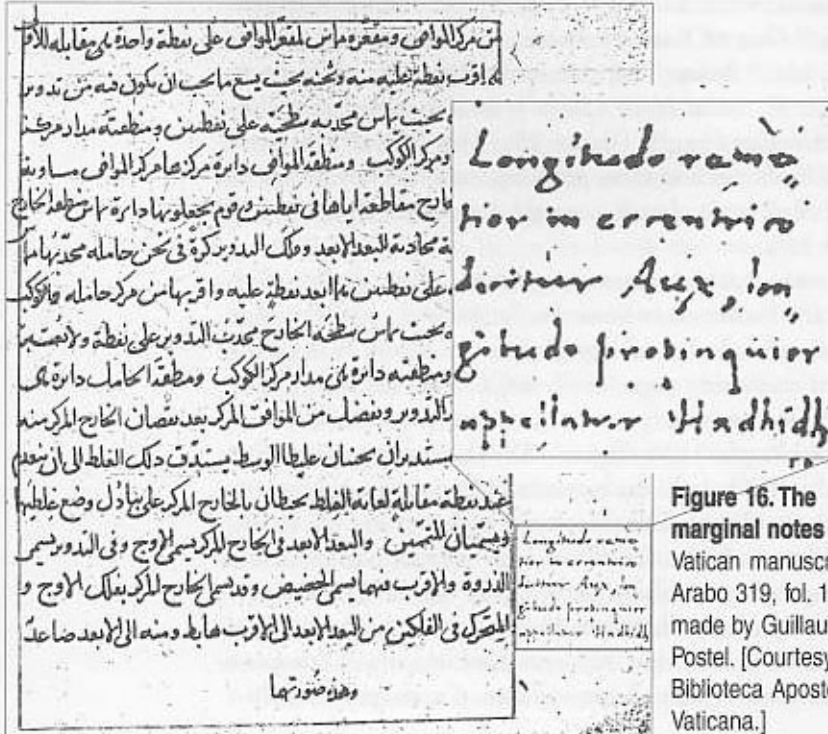 من مركز الموافق على نقطة واحدة هى مقابله
نقطة عليه منه وثخنه بحيث يسع ما يجب ان يكون فيه من تدوير
بحيث يماس محدبه سطحيه على نقطتين ومنطقته مدار مركز
ومركز الكوكب ومنطقه الموافق دايرة مركزها مركز الموافق
مقاطعة اياها فى نقطتين وقوم يجعلونها دايرة تماس منطقه الخارج
البعد الابعد وفلك التدوير كرة فى ثخن حامله
على نقطتين هما ابعد نقطة عليه واقربها من مركز حامله
بحيث يماس سطحه الخارج محدب التدوير على نقطة
ومنطقته دايرة هى مدار مركز الكوكب ومنطقه الحامل دايرة هى
التدوير ويفضل من الموافق المركز بعد نقصان الخارج المركز منه
يستدق ذلك الغلظ الى ان ينعدم
عند نقطة مقابلة لغاية الغلظ يحيطان بالخارج المركز على تبادل وضع
ويسميان المتممين والبعد الابعد فى الخارج المركز يسمى الاوج وفى التدوير يسمى
الذروة والاقرب فيهما يسمى الحضيض وقد يسمى الخارج المركز بفلك الاوج و
المتحرك فى الفلكين من البعد الابعد الى الاقرب هابط ومنه الى الابعد صاعد
وهذه صورتها
Longitudo remo
tior in eccentrico
dicitur Aux, lon
gitudo probinquior
appellatur Hadhidh
Longitudo remo
tior in eccentrico
dicitur Aux, lon
gitudo probinquior
appellatur Hadhidh
Figure 16. The
marginal notes
Vatican manuscr
Arabo 319, fol. 1
made by Guillau
Postel. [Courtesy
Biblioteca Aposto
Vaticana.]